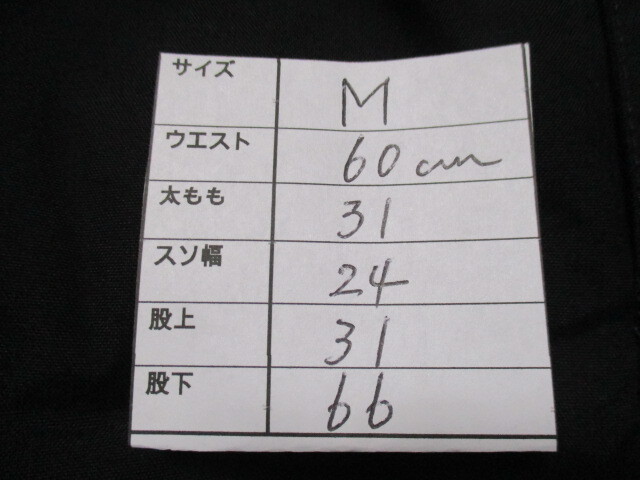 サイズ M
ウエスト 60cm
太もも 31
スソ幅 24
股上 31
股下 66